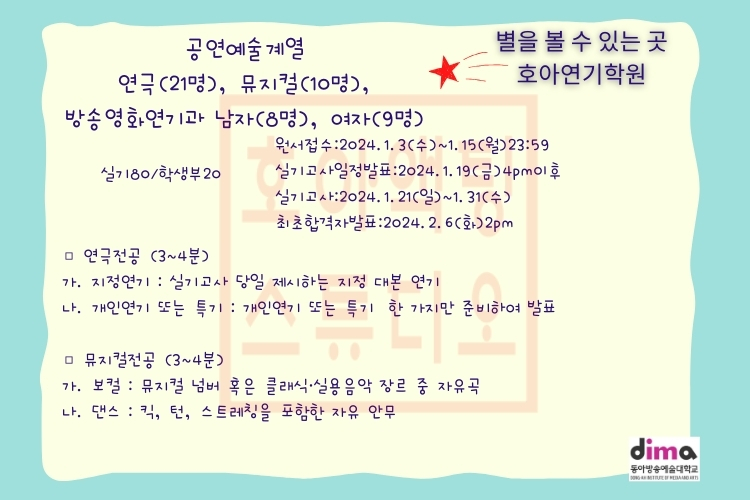 별을 볼 수 있는 곳
호아연기학원
공연예술계열
연극(21명), 뮤지컬(10명),
방송영화연기과 남자(8명), 여자(9명)
실기80/학생부20
원서접수:2024.1.3(수)~1.15(월)23:59
실기고사일정발표:2024.1.19(금)4pm이후
실기고사:2024.1.21(일)~1.31(수)
최초합격자발표:2024.2.6(화)2pm
□ 연극전공 (3~4분)
가. 지정연기 : 실기고사 당일 제시하는 지정 대본 연기
나. 개인연기 또는 특기 : 개인연기 또는 특기 한 가지만 준비하여 발표
□ 뮤지컬전공 (3~4분)
가. 보컬 : 뮤지컬 넘버 혹은 클래식·실용음악 장르 중 자유곡
나. 댄스 : 킥, 턴, 스트레칭을 포함한 자유 안무
호아액팅
스튜디오
dima
동아방송예술대학교
DONG-AH INSTITUTE OF MEDIA AND ARTS